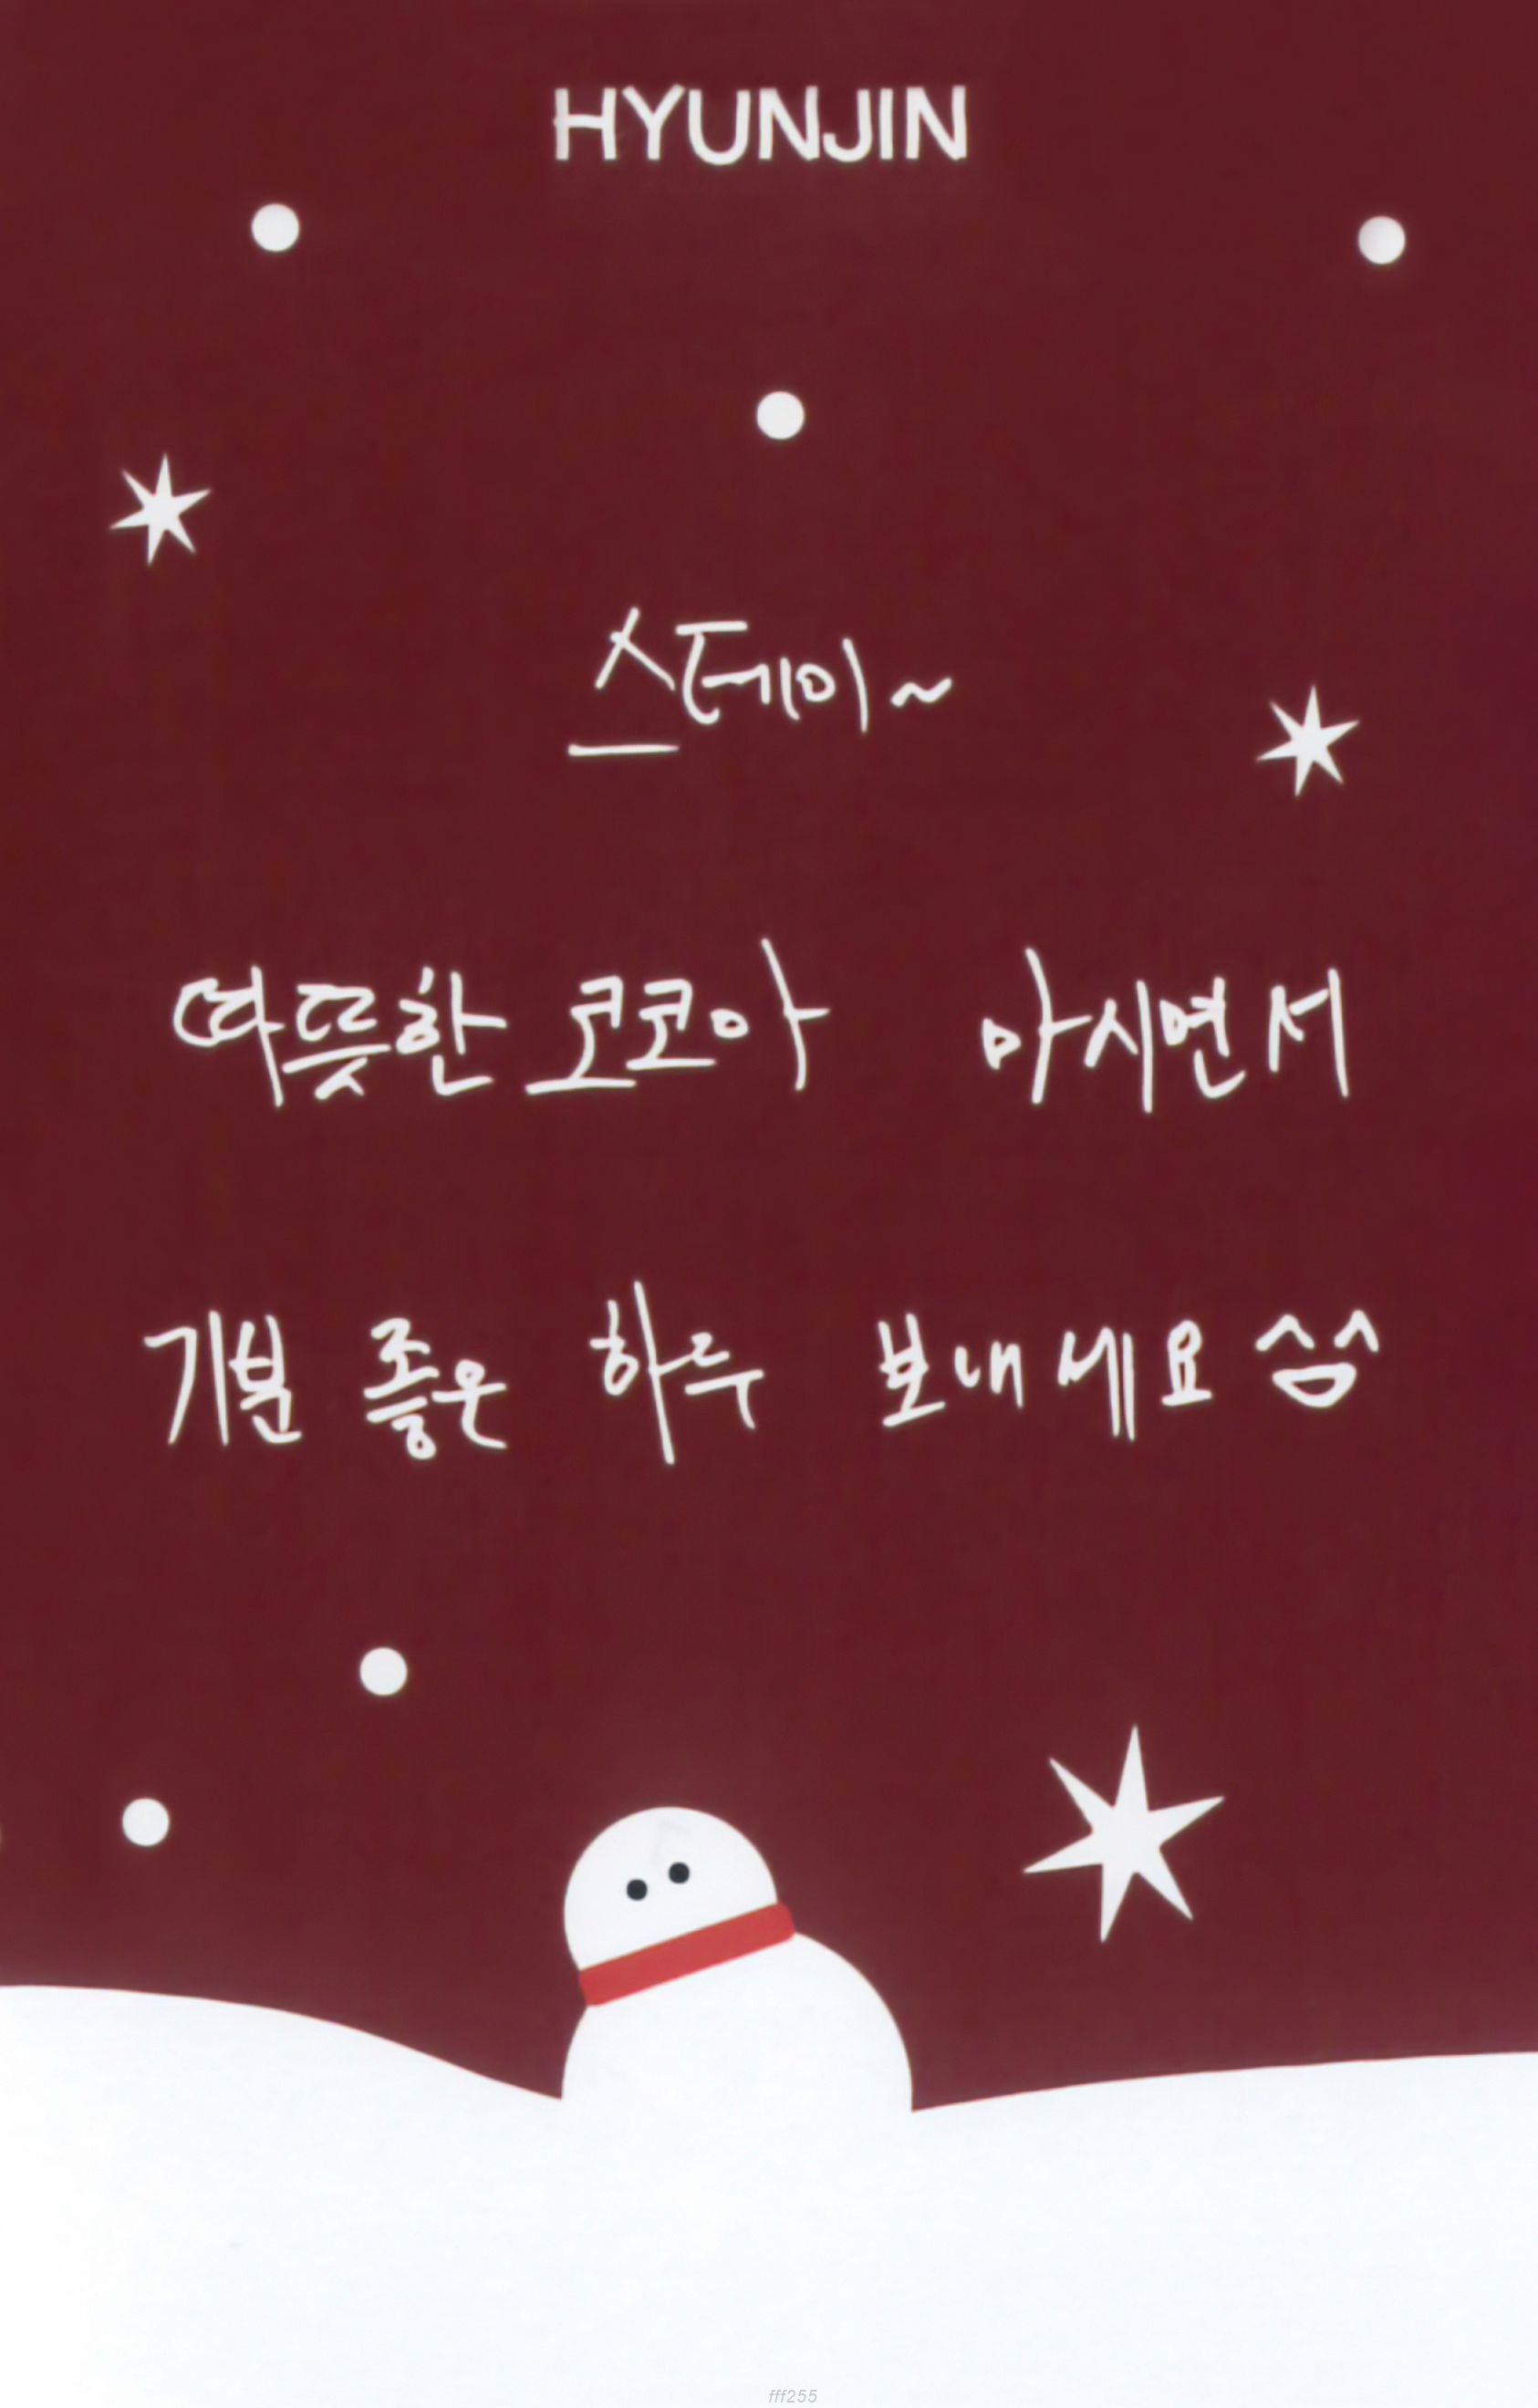 HYUNJIN
스테이~
따뜻한 코코아 마시면서
기분 좋은 하루 보내세요 ^^
fff255